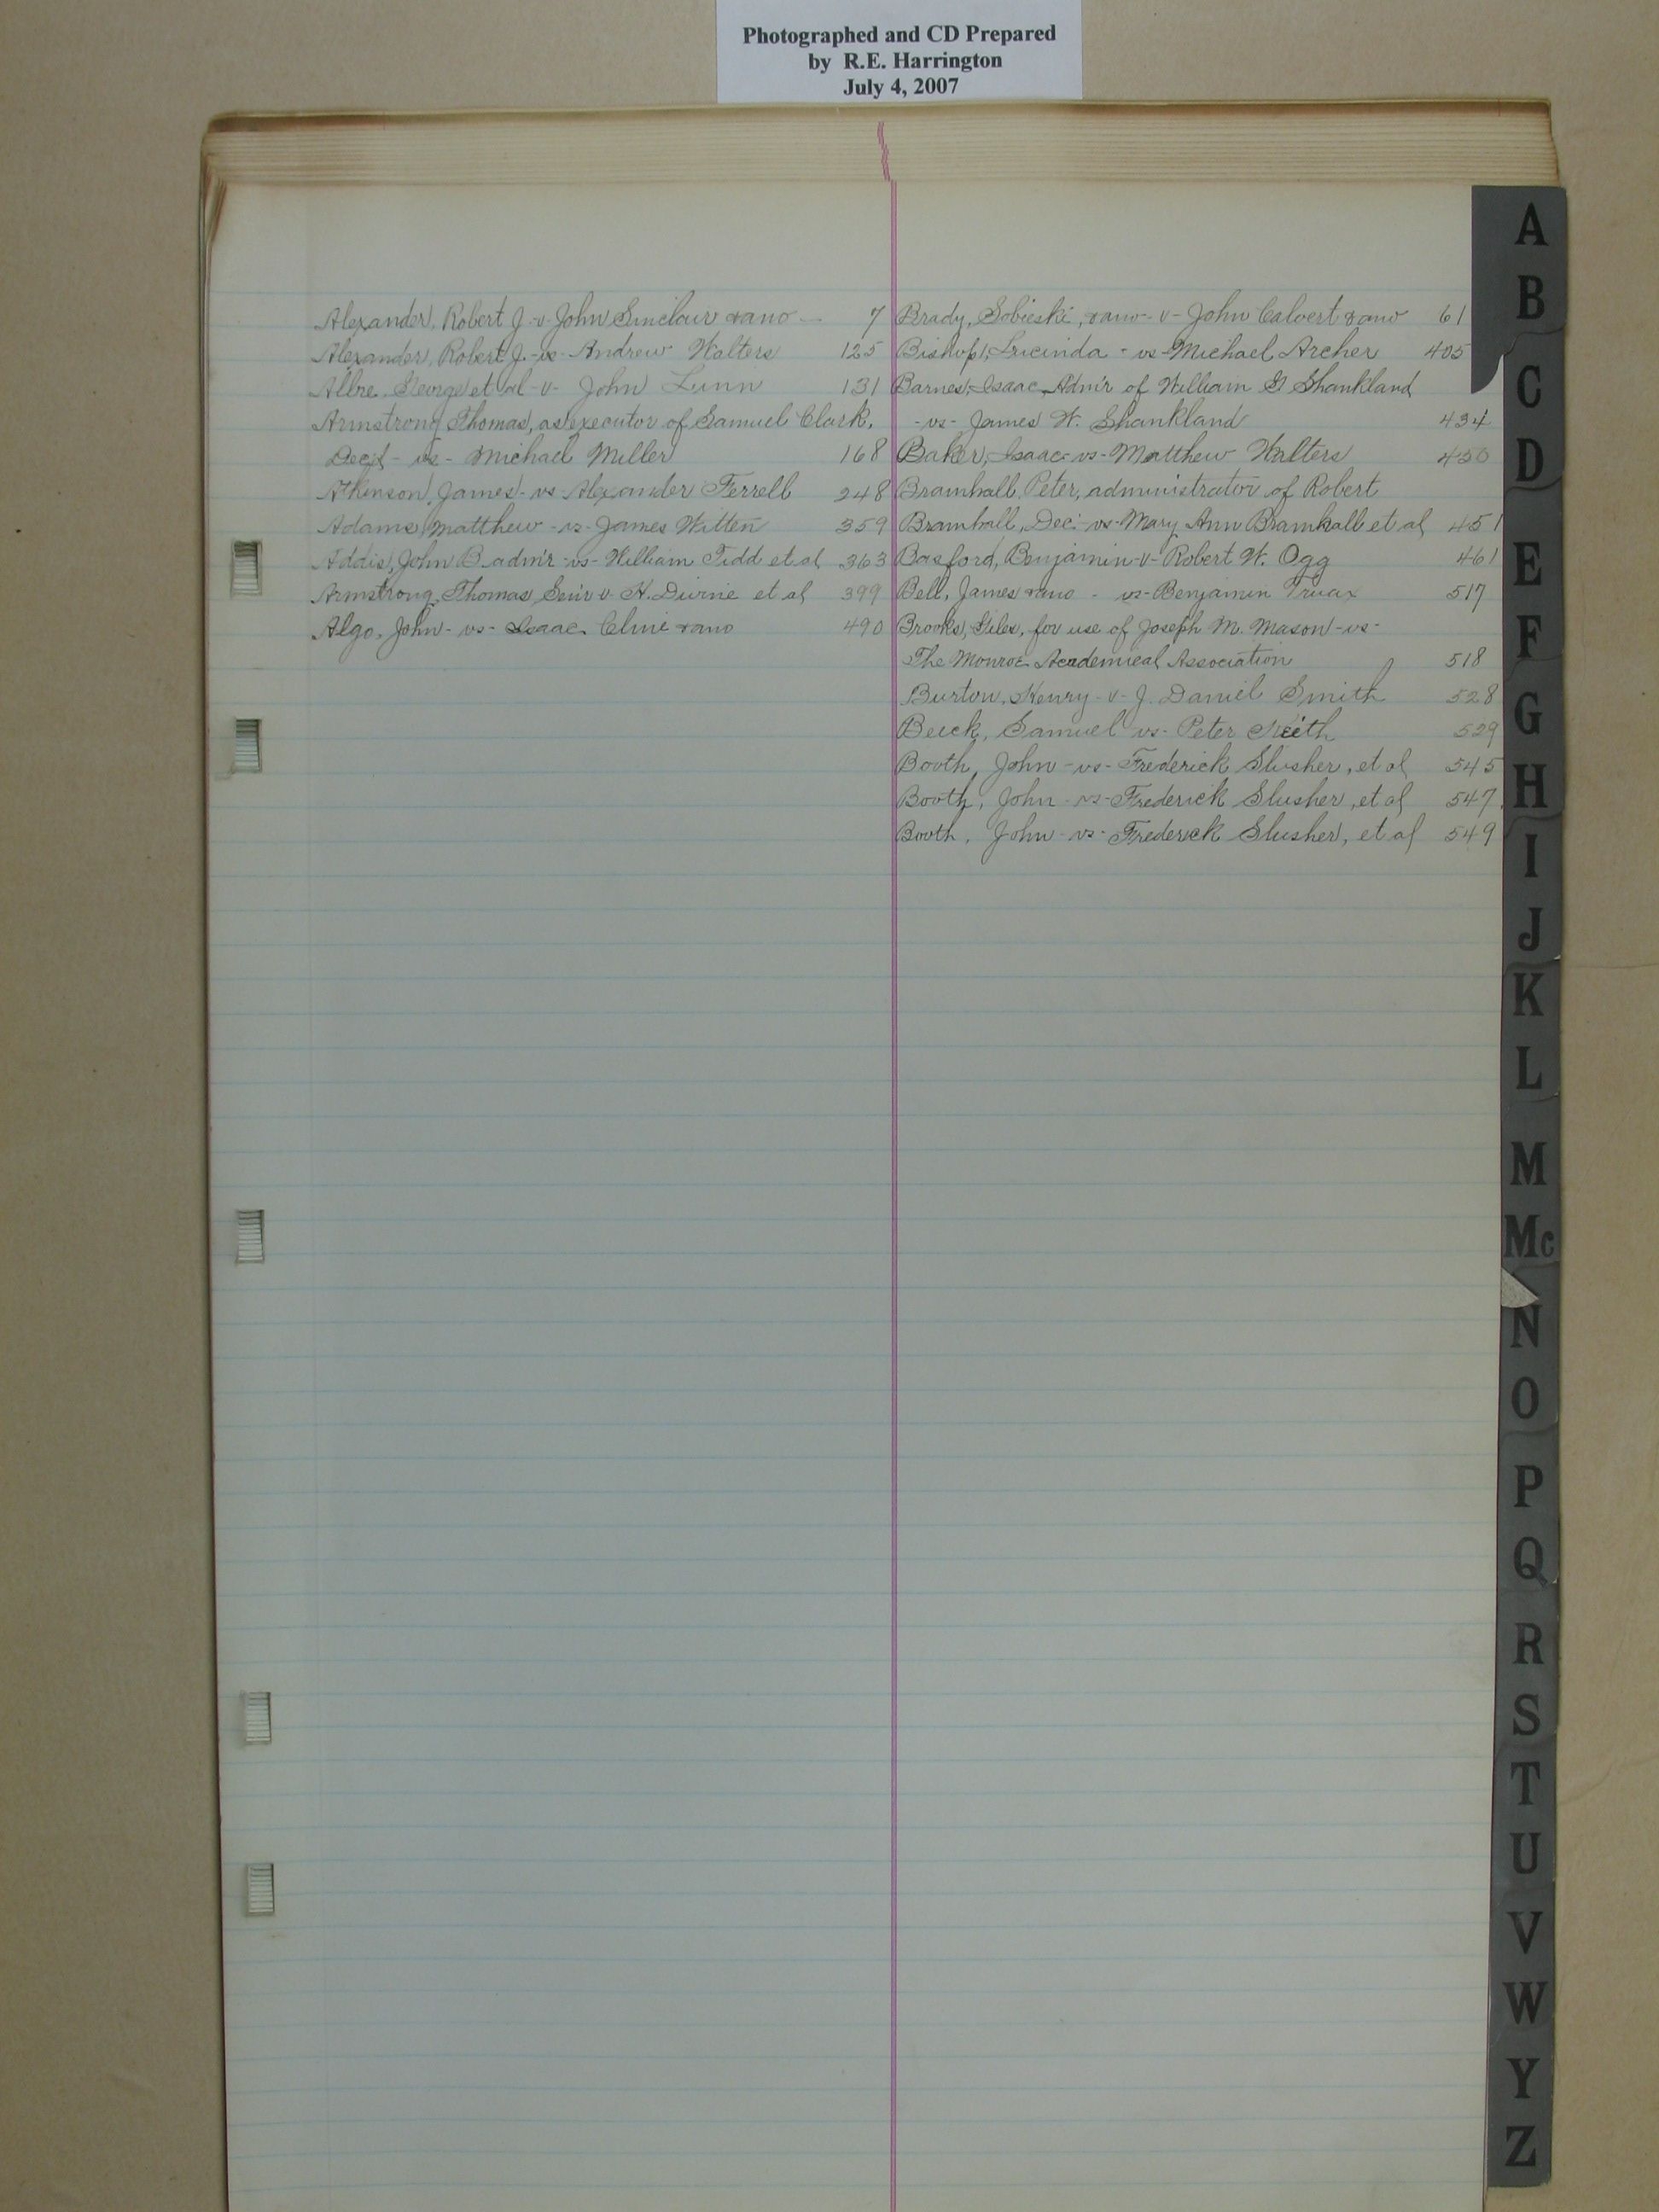 Photographed and CD Prepared
by R.E. Harrington
July 4, 2007
Alexander, Robert J. -v- John Sinclair & ano 7
Alexander, Robert J. -vs- Andrew Walters 125
George et al -v- John Lunn 131
Armstrong Thomas, as executor of Samuel Clark,
Dec'd -vs- Michael Miller 168
Atkinson, James -vs- Alexander Terrell 248
Adams, Matthew -vs- James Witten 359
Addis, John B. adm'r -vs- William Tidd et al 363
Armstrong, Thomas Sen'r v. H. Divine et al 399
Algo, John -vs- Isaac Cline & ano 490
Brady, Sobieski, & ano -v- John Calvert & ano 61
Bishop, Lucinda -vs- Michael Archer 405
Barnes, Isaac Adm'r of William G Shankland
-vs- James W. Shankland 434
Baker, Isaac -vs- Matthew Walters 450
Bramhall, Peter, administrator of Robert
Bramhall, Dec. -vs- Mary Ann Bramhall et al 451
Basford, Benjamin -v- Robert W. Ogg 461
Bell, James & ano - vs- Benjamin Truax 517
Brooks, Giles, for use of Joseph M. Mason -vs-
The Monroe Academical Association 518
Burton, Henry -v- J. Daniel Smith 528
Beick, Samuel vs- Peter Keith 529
Booth, John -vs- Frederick Slusher, et al 545
Booth, John -vs- Frederick Slusher, et al 547
Booth, John -vs- Frederick Slusher, et al 549
A
B
C
D
E
F
G
H
I
J
K
L
M
Mc
N
O
P
Q
R
S
T
U
V
W
Y
Z